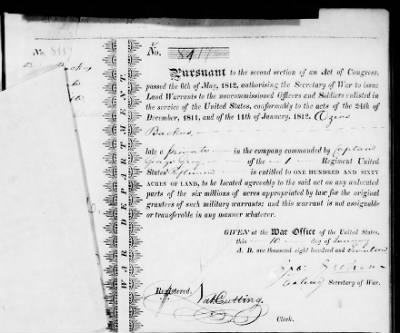 No.
Pursuant to the second section of an Act of Congress,
passed the 6th of May, 1812, authorising the Secretary of War to issue
Land Warrants to the noncommissioned Officers and Soldiers enlisted in
the service of the United States, conformably to the acts of the 24th of
December, 1811, and of the 11th of January, 1812.
late a private in the company commanded by Captain
George Gray of the 1 Regiment United
States Riflemen is entitled to ONE HUNDRED AND SIXTY
ACRES OF LAND, to be located agreeably to the said act on any unlocated
parts of the six millions of acres appropriated by law for the original
grantees of such military warrants; and this warrant is not assignable
or transferable in any manner whatever.
GIVEN at the War Office of the United States,
this 10 day of January
A. D. one thousand eight hundred and
Acting Secretary of War.
Registered.
Nat Cutting.
Clerk.
WAR DEPARTMENT
No.